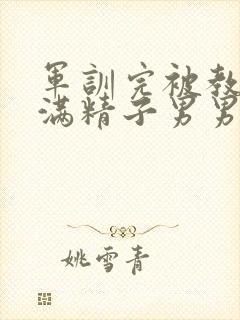 軍訓完被教
满精子男男
姚雪青